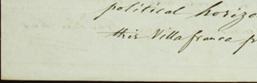 political horizo
this Villafranca